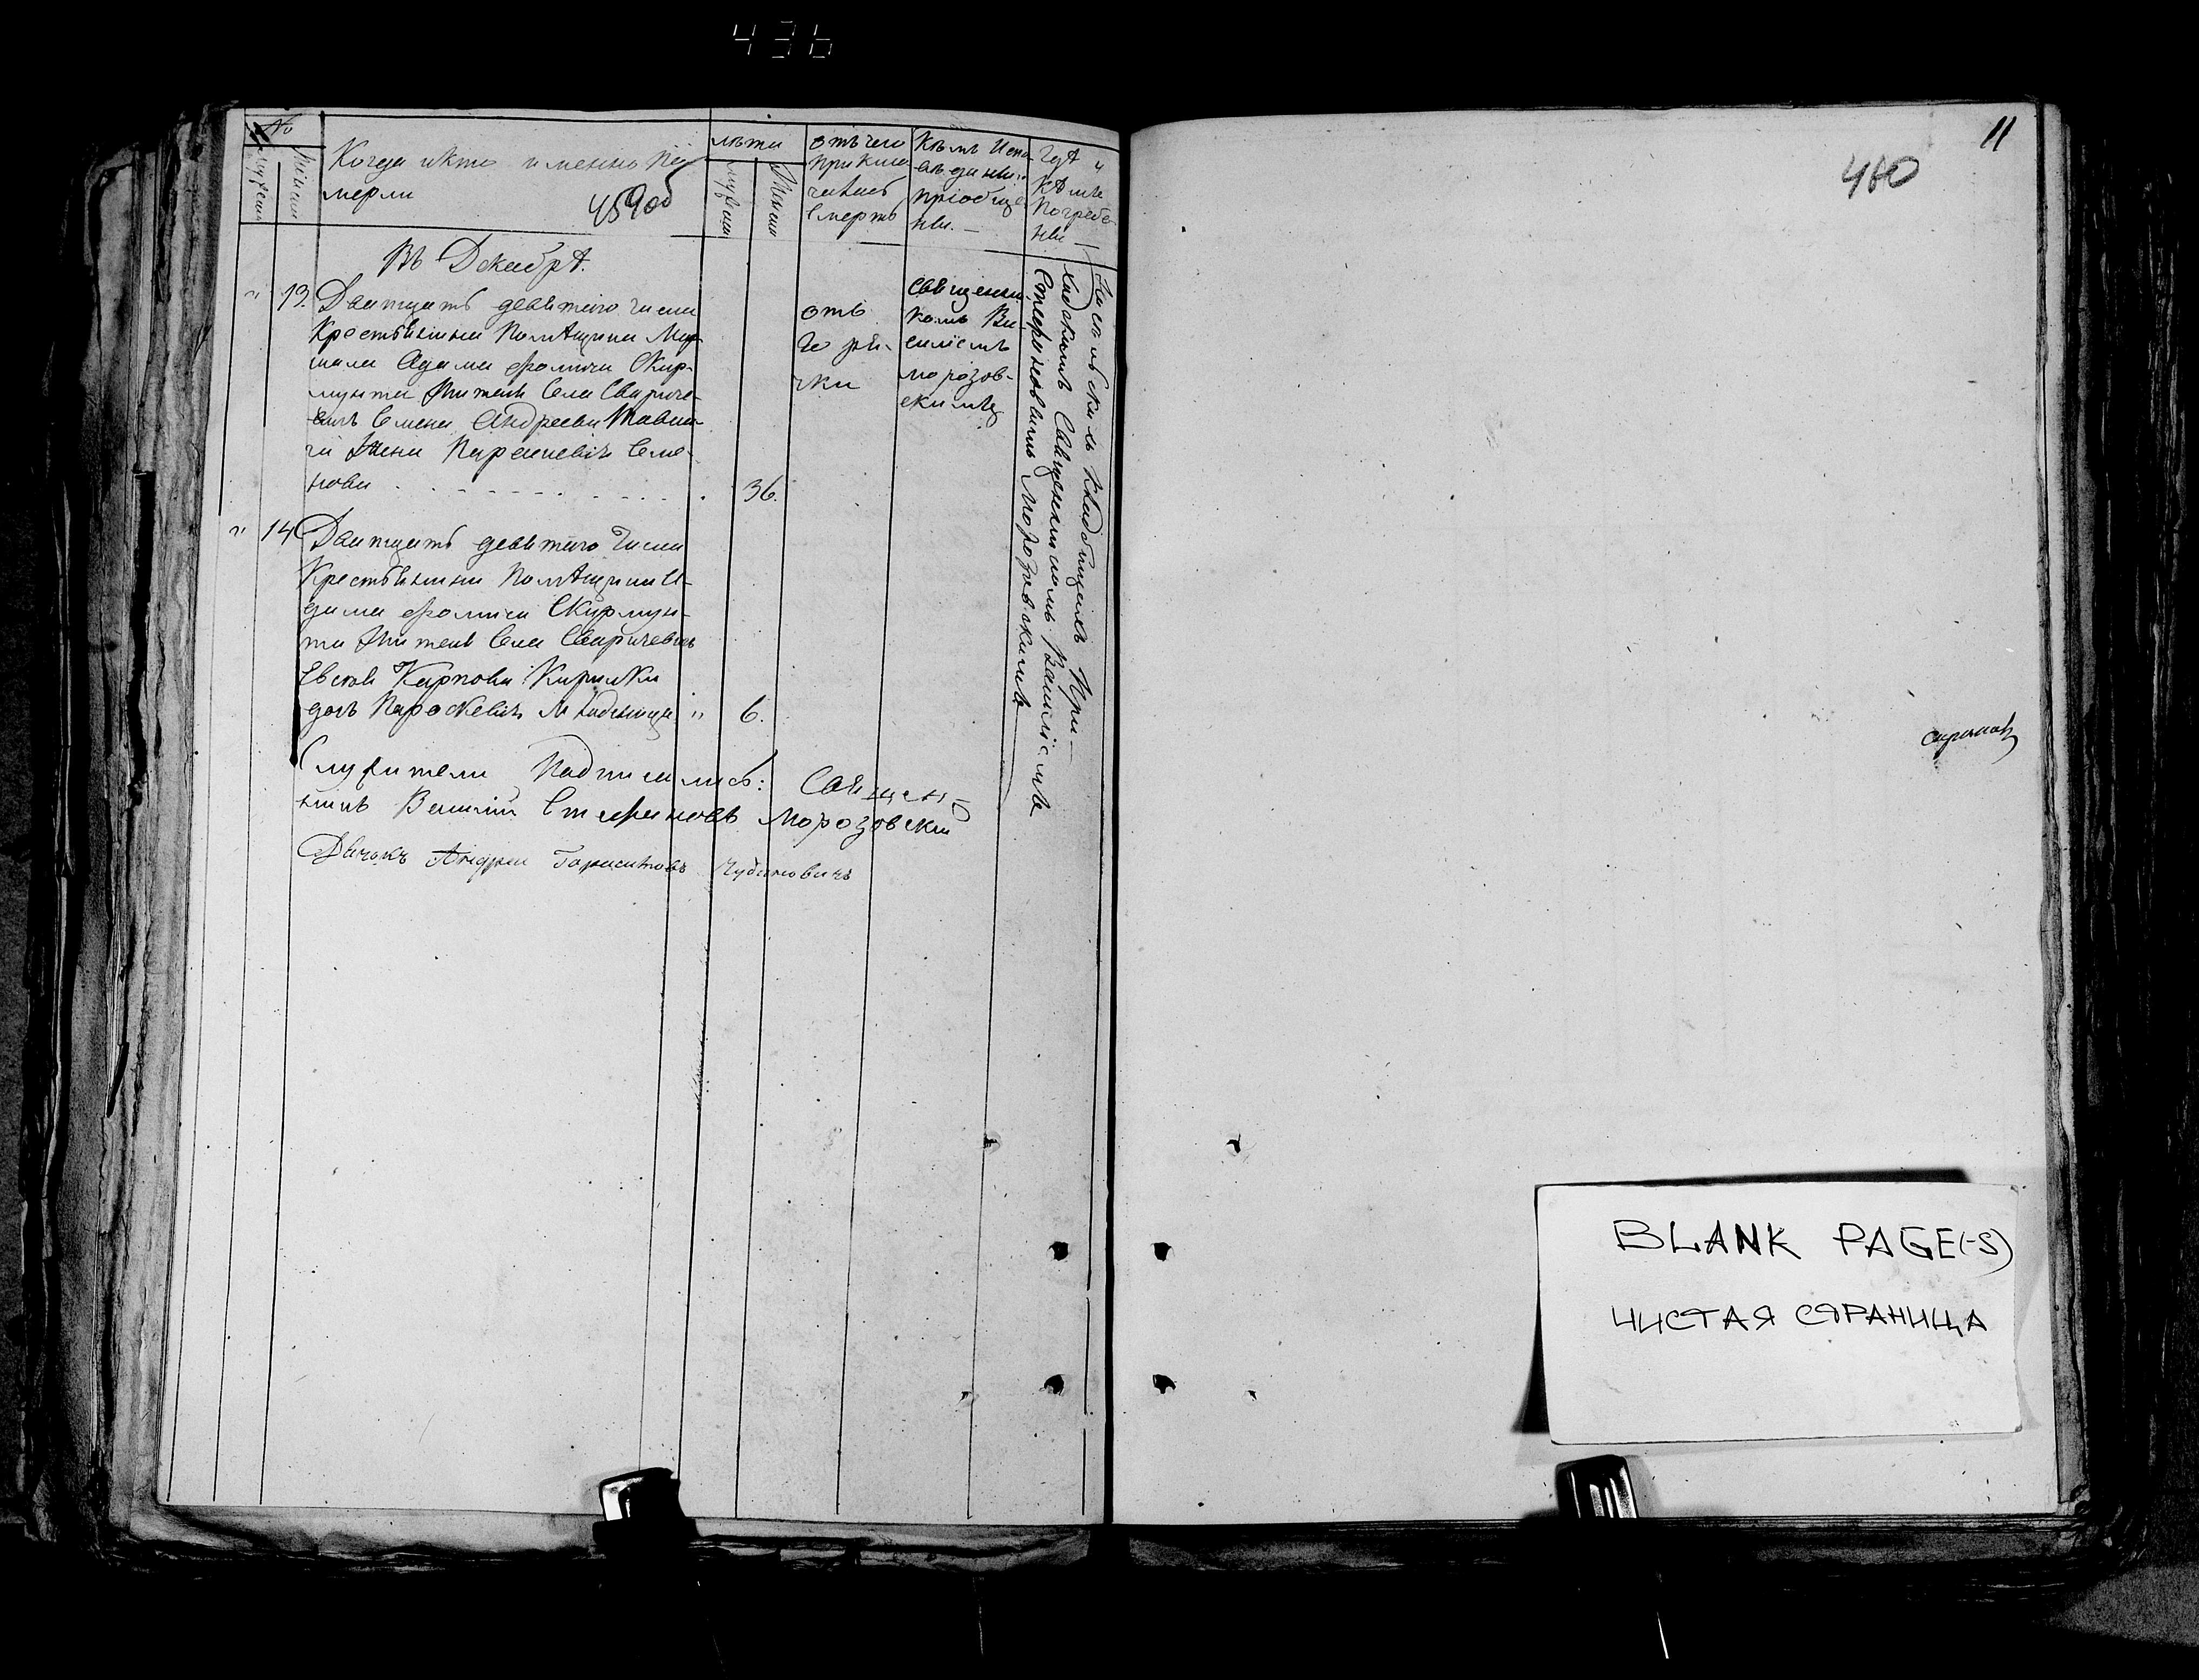 436
№
мужеск
женск
Когда и кто именно по
мерли
459об
лѣта
мужеск
женск
отъ чего
приклю
чилась
смерть
Кѣмъ Испо
вѣданы и
пріобще
ны. —
Гдѣ и
кѣмъ
погребе
ны —
Въ Декабрѣ.
" 13. Двадцать девятаго числа
Крестьянина Помѣщика Мар
шала Адама Фомича Скир-
мунта жителя села Сварице-
вичъ Семена Андреева
жена Параскевія Семе-
нова . . . . . . . . 36.
отъ
горя-
чки
Священни
комъ Ва-
силіемъ
Морозов-
скимъ
На сельскомъ кладбищѣ При—
ходскимъ Священникомъ Василіемъ
Стефановичемъ Морозовскимъ
" 14 Двадцать девятаго числа
Крестьянина Помѣщика А-
дама Фомича Скирмун-
та жителя села Сваричевичъ
Карпова Кирилки
дочь Параскевія младенецъ " 6.
Служители Подписались: Священ-
никъ Василій Стефановъ Морозовскій
Дьячокъ Андрей Чудиновичъ
11
460
BLANK PAGE(-S)
ЧИСТАЯ СТРАНИЦА